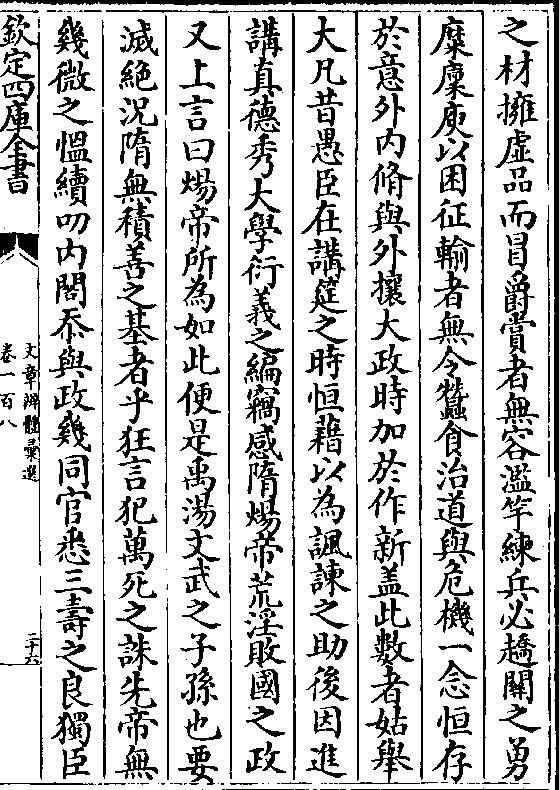 之材擁虛品而冒爵賞者無容濫竽練兵必趫關之勇
糜廩庾以困征輸者無令蠶食治道與危機一念恒存
於意外内脩與外攘大政時加於作新盖此數者姑舉
大凡昔愚臣在講筵之時恒藉以為諷諫之助後因進
講真德秀大學衍義之編竊感隋煬帝荒淫敗國之政
又上言曰煬帝所為如此便是禹湯文武之子孫也要
滅絶況隋無積善之基者乎狂言犯萬死之誅先帝無
幾微之愠續叨内閣忝與政幾同官悉三壽之良獨臣
欽定四庫全書
文章辨體彙選
卷一百八
二十六